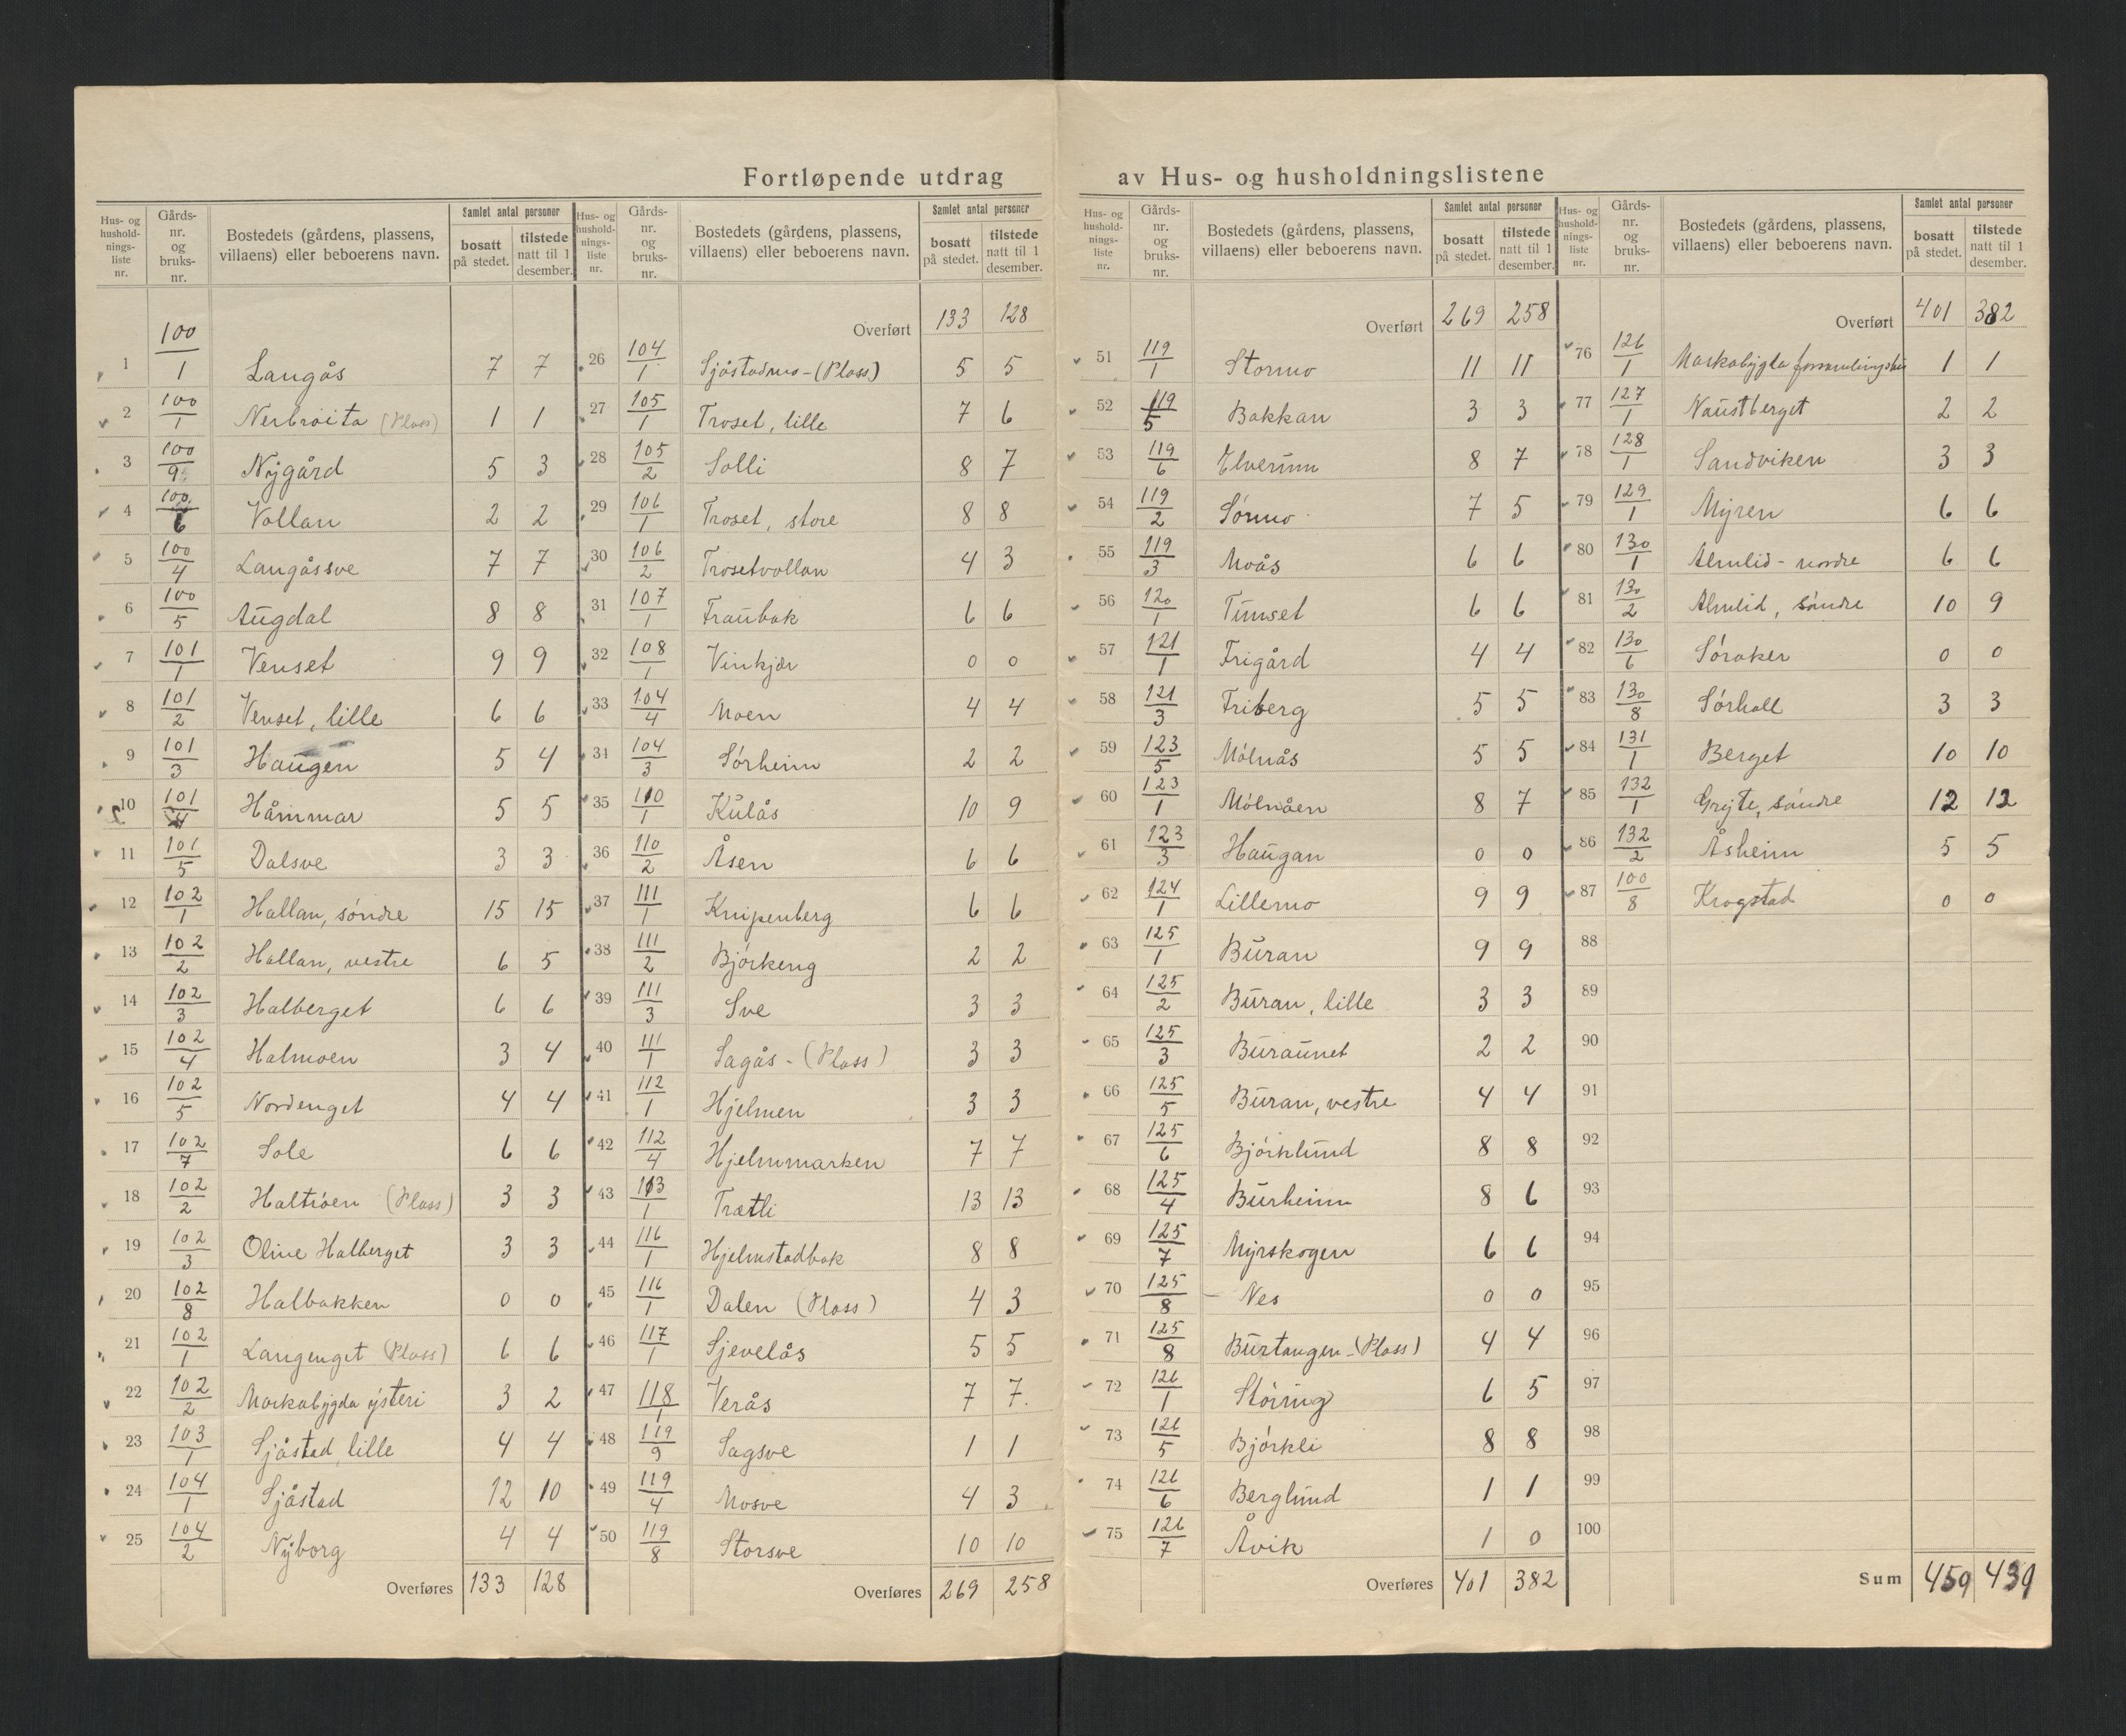 Fortløpende utdrag av Hus- og husholdningslistene
Hus- og hushold-nings-liste nr. Gårds-nr. og bruks-nr. Bostedets (gårdens, plassens, villaens) eller beboerens navn. Samlet antal personer bosatt på stedet. tilstede natt til 1 desember.
1 100/1 Langås 7 7
2 100/1 Nerbroita (Plass) 1 1
3 100/9 Nygård 5 3
4 100/6 Vollan 2 2
5 100/4 Langåssve 7 7
6 100/5 Augdal 8 8
7 101/1 Venset 9 9
8 101/2 Venset, lille 6 6
9 101/3 Haugen 5 4
10 101/4 Håmmar 5 5
11 101/5 Dalsve 3 3
12 102/1 Hallan, søndre 15 15
13 102/2 Hallan, vestre 6 5
14 102/3 Halberget 6 6
15 102/4 Halmoen 3 4
16 102/5 Nordenget 4 4
17 102/7 Sole 6 6
18 102/2 Haltrøen (Plass) 3 3
19 102/3 Oline Halberget 3 3
20 102/8 Halbakken 0 0
21 102/1 Langenget (Plass) 6 6
22 102/2 Markabygda ysteri 3 2
23 103/1 Sjåstad, lille 4 4
24 104/1 Sjåstad 12 10
25 104/2 Nyborg 4 4
Overføres 133 128
Hus- og hushold-nings-liste nr. Gårds-nr. og bruks-nr. Bostedets (gårdens, plassens, villaens) eller beboerens navn. Samlet antal personer bosatt på stedet. tilstede natt til 1 desember.
Overført 133 128
26 104/1 Sjåstadmo - (Plass) 5 5
27 105/1 Troset, lille 7 6
28 105/2 Solli 8 7
29 106/1 Troset, store 8 8
30 106/2 Trosetvollan 4 3
31 107/1 Fraubak 6 6
32 108/1 Vinkjær 0 0
33 104/4 Moen 4 4
34 104/3 Sørheim 2 2
35 110/1 Kulås 10 9
36 110/2 Åsen 6 6
37 111/1 Knipenberg 6 6
38 111/2 Bjørkeng 2 2
39 111/3 Sve 3 3
40 111/1 Sagås - (Plass) 3 3
41 112/1 Hjelmen 3 3
42 112/4 Hjelmmarken 7 7
43 113/1 Trætli 13 13
44 116/1 Hjelmstadbak 8 8
45 116/1 Dalen (Plass) 4 3
46 117/1 Sjevelås 5 5
47 118/1 Verås 7 7
48 119/9 Sagsve 1 1
49 119/4 Mosve 4 3
50 119/8 Storsve 10 10
Overføres 269 258
Hus- og hushold-nings-liste nr. Gårds-nr. og bruks-nr. Bostedets (gårdens, plassens, villaens) eller beboerens navn. Samlet antal personer bosatt på stedet. tilstede natt til 1 desember.
Overført 269 258
51 119/1 Stormo 11 11
52 119/5 Bakkan 3 3
53 119/6 Elverum 8 7
54 119/2 Sørmo 7 5
55 119/3 Moås 6 6
56 120/1 Tunset 6 6
57 121/1 Frigård 4 4
58 121/3 Friberg 5 5
59 123/5 Mølnås 5 5
60 123/1 Mølnåen 8 7
61 123/3 Haugan 0 0
62 124/1 Lillemo 9 9
63 125/1 Buran 9 9
64 125/2 Buran, lille 3 3
65 125/3 Buraunet 2 2
66 125/5 Buran, vestre 4 4
67 125/6 Bjørklund 8 8
68 125/4 Burheim 8 6
69 125/7 Myrskogen 6 6
70 125/8 Nes 0 0
71 125/8 Burtangen - (Plass) 4 4
72 126/1 Støring 6 5
73 126/5 Bjørkli 8 8
74 126/6 Berglund 1 1
75 126/7 Åvik 1 0
Overføres 401 382
Hus- og hushold-nings-liste nr. Gårds-nr. og bruks-nr. Bostedets (gårdens, plassens, villaens) eller beboerens navn. Samlet antal personer bosatt på stedet. tilstede natt til 1 desember.
Overført 401 382
76 126/1 Markabygda forsamlingshus 1 1
77 127/1 Naustberget 2 2
78 128/1 Sandviken 3 3
79 129/1 Myren 6 6
80 130/1 Almlid - nordre 6 6
81 130/2 Almlid, søndre 10 9
82 130/6 Søraker 0 0
83 130/8 Sørhall 3 3
84 131/1 Berget 10 10
85 132/1 Grejte, søndre 12 12
86 132/2 Åsheim 5 5
87 100/8 Krogstad 0 0
88
89
90
91
92
93
94
95
96
97
98
99
100
Sum 459 439